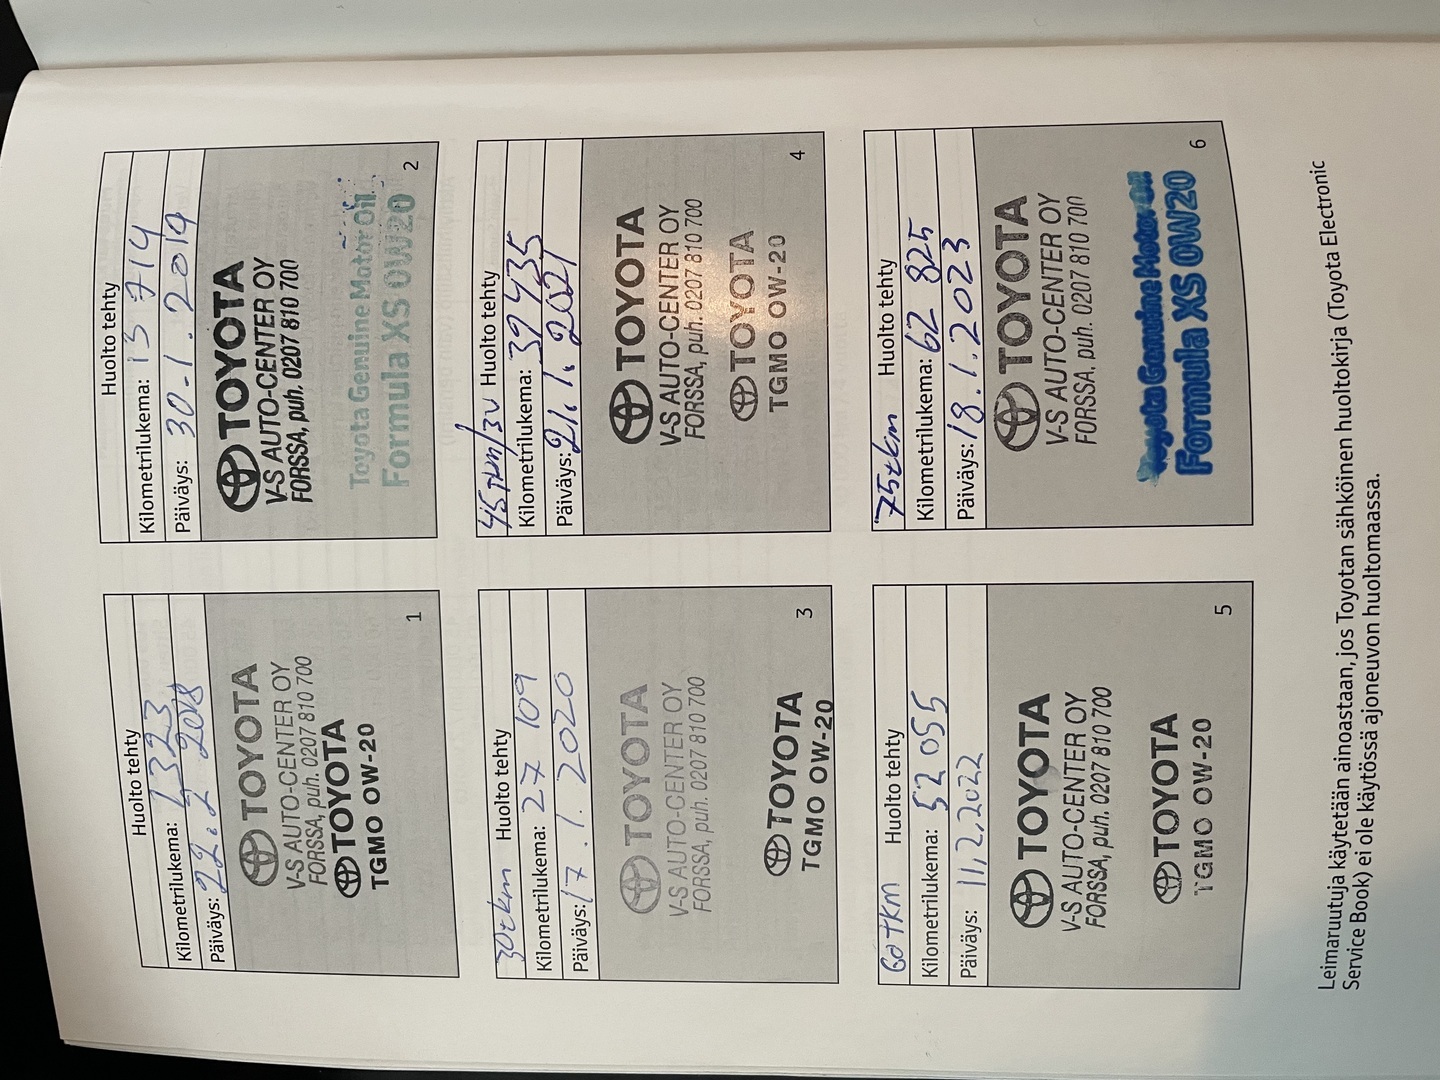 Huolto tehty
Kilometrilukema: 1 323
Päiväys: 22.2 2018
TOYOTA
V-S AUTO-CENTER OY
FORSSA, puh. 0207 810 700
TOYOTA
TGMO OW-20
1
Huolto tehty
Kilometrilukema: 13 714
Päiväys: 30.1.2019
TOYOTA
V-S AUTO-CENTER OY
FORSSA, puh. 0207 810 700
Toyota Genuine Motor Oil
Formula XS 0W20
2
30tkm Huolto tehty
Kilometrilukema: 27 109
Päiväys: 17.1.2020
TOYOTA
V-S AUTO-CENTER OY
FORSSA, puh. 0207 810 700
TOYOTA
TGMO OW-20
3
45tkm/3v Huolto tehty
Kilometrilukema: 39 435
Päiväys: 21.1.2021
TOYOTA
V-S AUTO-CENTER OY
FORSSA, puh. 0207 810 700
TOYOTA
TGMO OW-20
4
60tkm Huolto tehty
Kilometrilukema: 52 055
Päiväys: 11.2.2022
TOYOTA
V-S AUTO-CENTER OY
FORSSA, puh. 0207 810 700
TOYOTA
TGMO OW-20
5
75tkm Huolto tehty
Kilometrilukema: 62 825
Päiväys: 18.1.2023
TOYOTA
V-S AUTO-CENTER OY
FORSSA, puh. 0207 810 700
Toyota Genuine Motor Oil
Formula XS 0W20
6
Leimaruutuja käytetään ainoastaan, jos Toyotan sähköinen huoltokirja (Toyota Electronic
Service Book) ei ole käytössä ajoneuvon huoltomaassa.